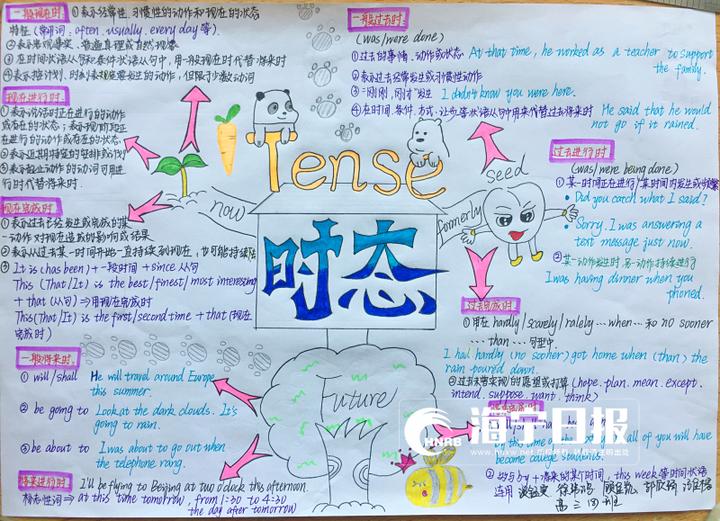 一般现在时
①表示经常性、习惯性的动作和现在的状态
特征(常用词: often, usually, every day 等).
②表示客观事实、普遍真理或自然现象
③在时间状语从句和条件状语从句中,用一般现在时代替将来时
④表示按计划、时刻表规定要发生的动作,但限于少数动词
现在进行时
①表示说话时正在进行的动作
或存在的状态;表示现阶段正
在进行的动作或存在的状态.
②表示近期特定的安排或计划
③表示趋止动作的动词可用进
行时代替将来时.
现在完成时
①表示过去已经发生或完成的某
一动作对现在造成的影响或结果
②表示从过去某一时间开始一直持续到现在,也可能持续
③ It is (has been) + 一段时间 + since 从句
This (That/It) is the best/finest/most interesting
+ that (从句) ⇒ 用现在完成时
This (That/It) is the first/second time + that (现在
完成时)
一般将来时
① will/shall He will travel around Europe
this summer.
② be going to Look at the dark clouds. It's
going to rain.
③ be about to I was about to go out when
the telephone rang.
将来进行时
I'll be flying to Beijing at two o'clock this afternoon.
标志性词 ⇒ at this time tomorrow, from 1:30 to 4:30
the day after tomorrow
Tense
时态
now
Formerly
seed
Future
一般过去时
(was/were done)
①过去的事情、动作或状态 At that time, he worked as a teacher to support
the family.
②表示过去经常发生或习惯性动作
③"刚刚,刚才"发生 I didn't know you were here.
④在时间、条件、方式、让步等状语从句中用来代替过去将来时 He said that he would
not go if it rained.
过去进行时
(was/were being done)
①某一时间正在进行/某时间内发生或
Did you catch what I said?
Sorry. I was answering a
text message just now.
②某一动作发生时另一动作持续进行
I was having dinner when you
phoned.
过去完成时
①用在 hardly/scarely/ralely … when … 和 no sooner
… than … 句型中.
I had hardly (no sooner) got home when (than) the
rain poured down.
②过去未曾实现的愿望或打算 (hope. plan. mean. except.
intend. suppose. want. think)
all of you will have
become college students.
②均与 by + 将来的某个时间, this week 等时间状语
连用
高三(四)班
HNRB 海宁日报